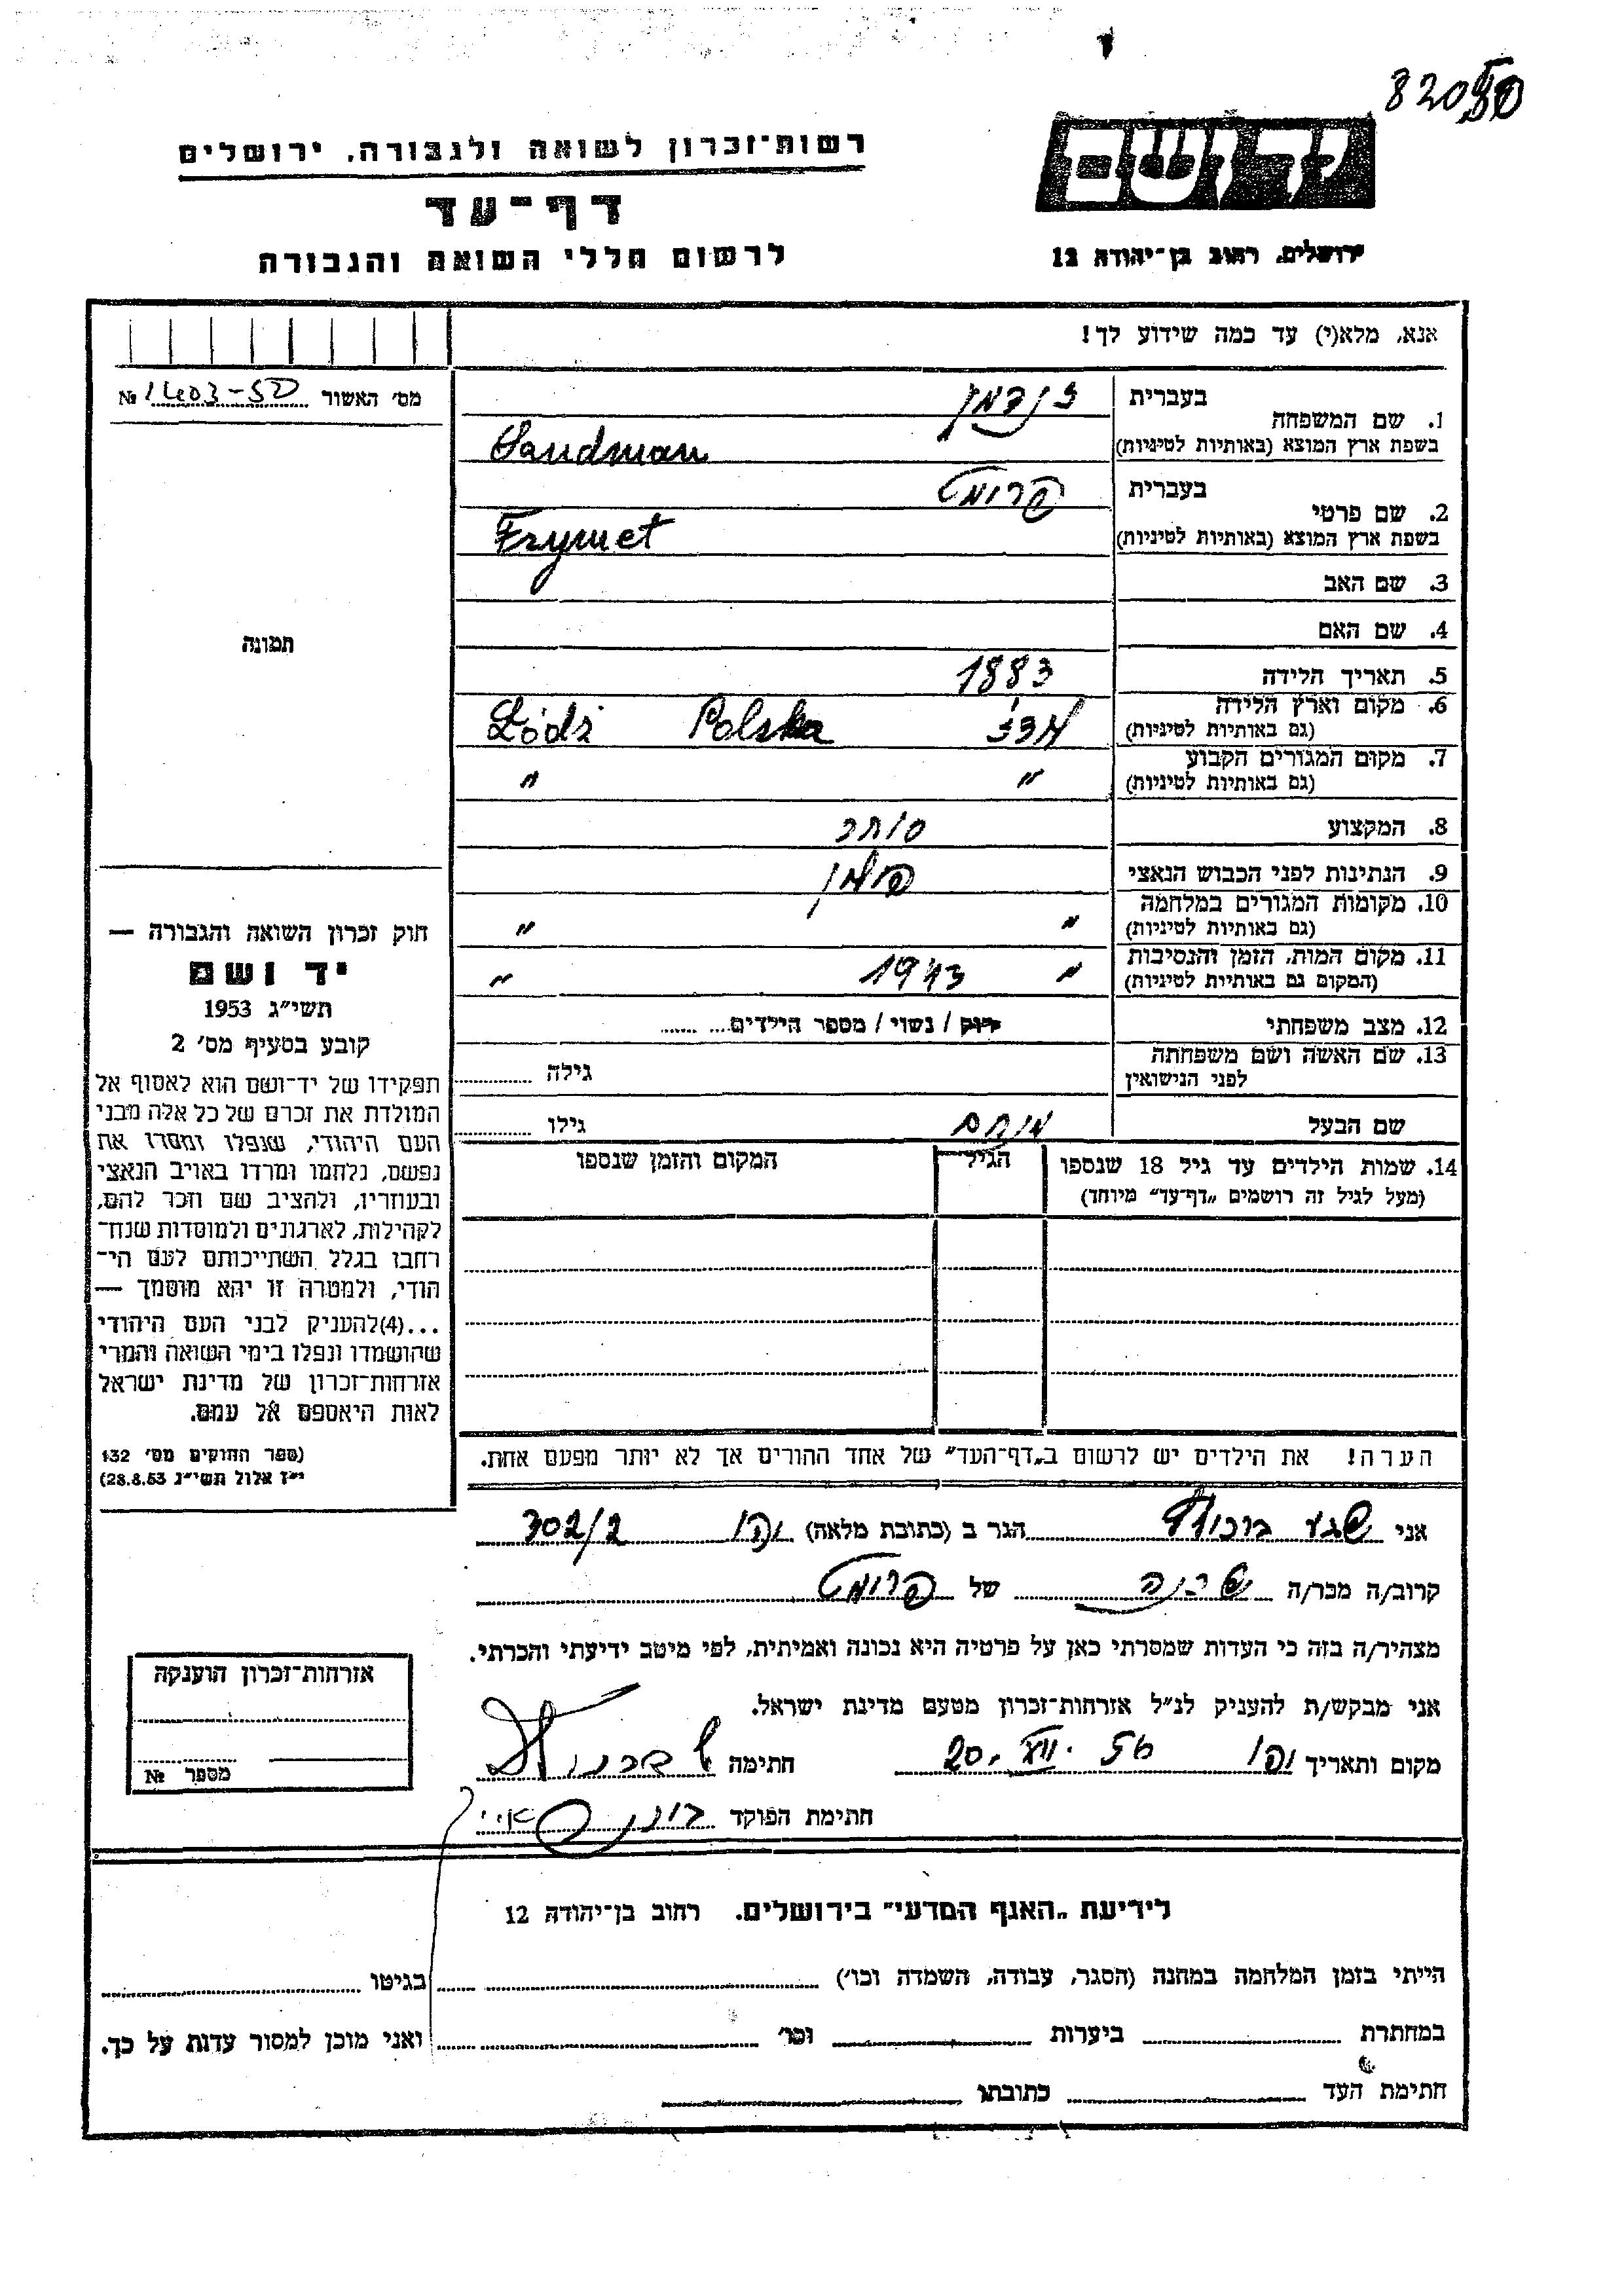 82050
רשות־זכרון לשואה ולגבורה, ירושלים
יד ושם
דף־עד
לרשום חללי השואה והגבורה
ירושלים, רחוב בן־יהודה 12
אנא, מלא(י) עד כמה שידוע לך!
מס׳ האשור № 1403-50
1. שם המשפחה
בעברית זנדמן
בשפת ארץ המוצא (באותיות לטיניות) Sandman
2. שם פרטי
בעברית פרומט
בשפת ארץ המוצא (באותיות לטיניות) Frymet
3. שם האב
4. שם האם
תמונה
5. תאריך הלידה 1883
6. מקום וארץ הלידה
(גם באותיות לטיניות) לודז׳ Polska Łódź
7. מקום המגורים הקבוע
(גם באותיות לטיניות) " "
8. המקצוע סוחר
9. הנתינות לפני הכבוש הנאצי פולין
10. מקומות המגורים במלחמה
(גם באותיות לטיניות) " "
11. מקום המות, הזמן והנסיבות
(המקום גם באותיות לטיניות) " 1943 "
12. מצב משפחתי רוק / נשוי / מספר הילדים
13. שם האשה ושם משפחתה
לפני הנישואין גילה
שם הבעל מנחם גילו
14. שמות הילדים עד גיל 18 שנספו הגיל המקום והזמן שנספו
(מעל לגיל זה רושמים „דף־עד" מיוחד)
הערה! את הילדים יש לרשום ב„דף־העד" של אחד ההורים אך לא יותר מפעם אחת.
חוק זכרון השואה והגבורה —
יד ושם
תשי״ג 1953
קובע בסעיף מס׳ 2
תפקידו של יד־ושם הוא לאסוף אל
המולדת את זכרם של כל אלה מבני
העם היהודי, שנפלו ומסרו את
נפשם, נלחמו ומרדו באויב הנאצי
ובעוזריו, ולהציב שם וזכר להם,
לקהילות, לארגונים ולמוסדות שנח־
רחבו בגלל השתייכותם לעם הי־
הודי, ולמטרה זו יהא מוסמך —
...(4)להעניק לבני העם היהודי
שהושמדו ונפלו בימי השואה והמרי
אזרחות־זכרון של מדינת ישראל
לאות היאספם אל עמם.
(ספר החוקים מס׳ 132
י״ז אלול תשי״ג 28.8.53)
אני הגר ב (כתובת מלאה) יפו 302/2
קרוב/ה מכר/ה של פרומט
מצהיר/ה בזה כי העדות שמסרתי כאן על פרטיה היא נכונה ואמיתית, לפי מיטב ידיעתי והכרתי.
אני מבקש/ת להעניק לנ״ל אזרחות־זכרון מטעם מדינת ישראל.
מקום ותאריך יפו 20. VII. 56 חתימה
חתימת הפוקד
אזרחות־זכרון הוענקה
מספר №
לידיעת „האגף המדעי" בירושלים. רחוב בן־יהודה 12
הייתי בזמן המלחמה במחנה (הסגר, עבודה, השמדה וכו׳) בגיטו
במחתרת ביערות וכו׳ ואני מוכן למסור עדות על כך.
חתימת העד כתובתו